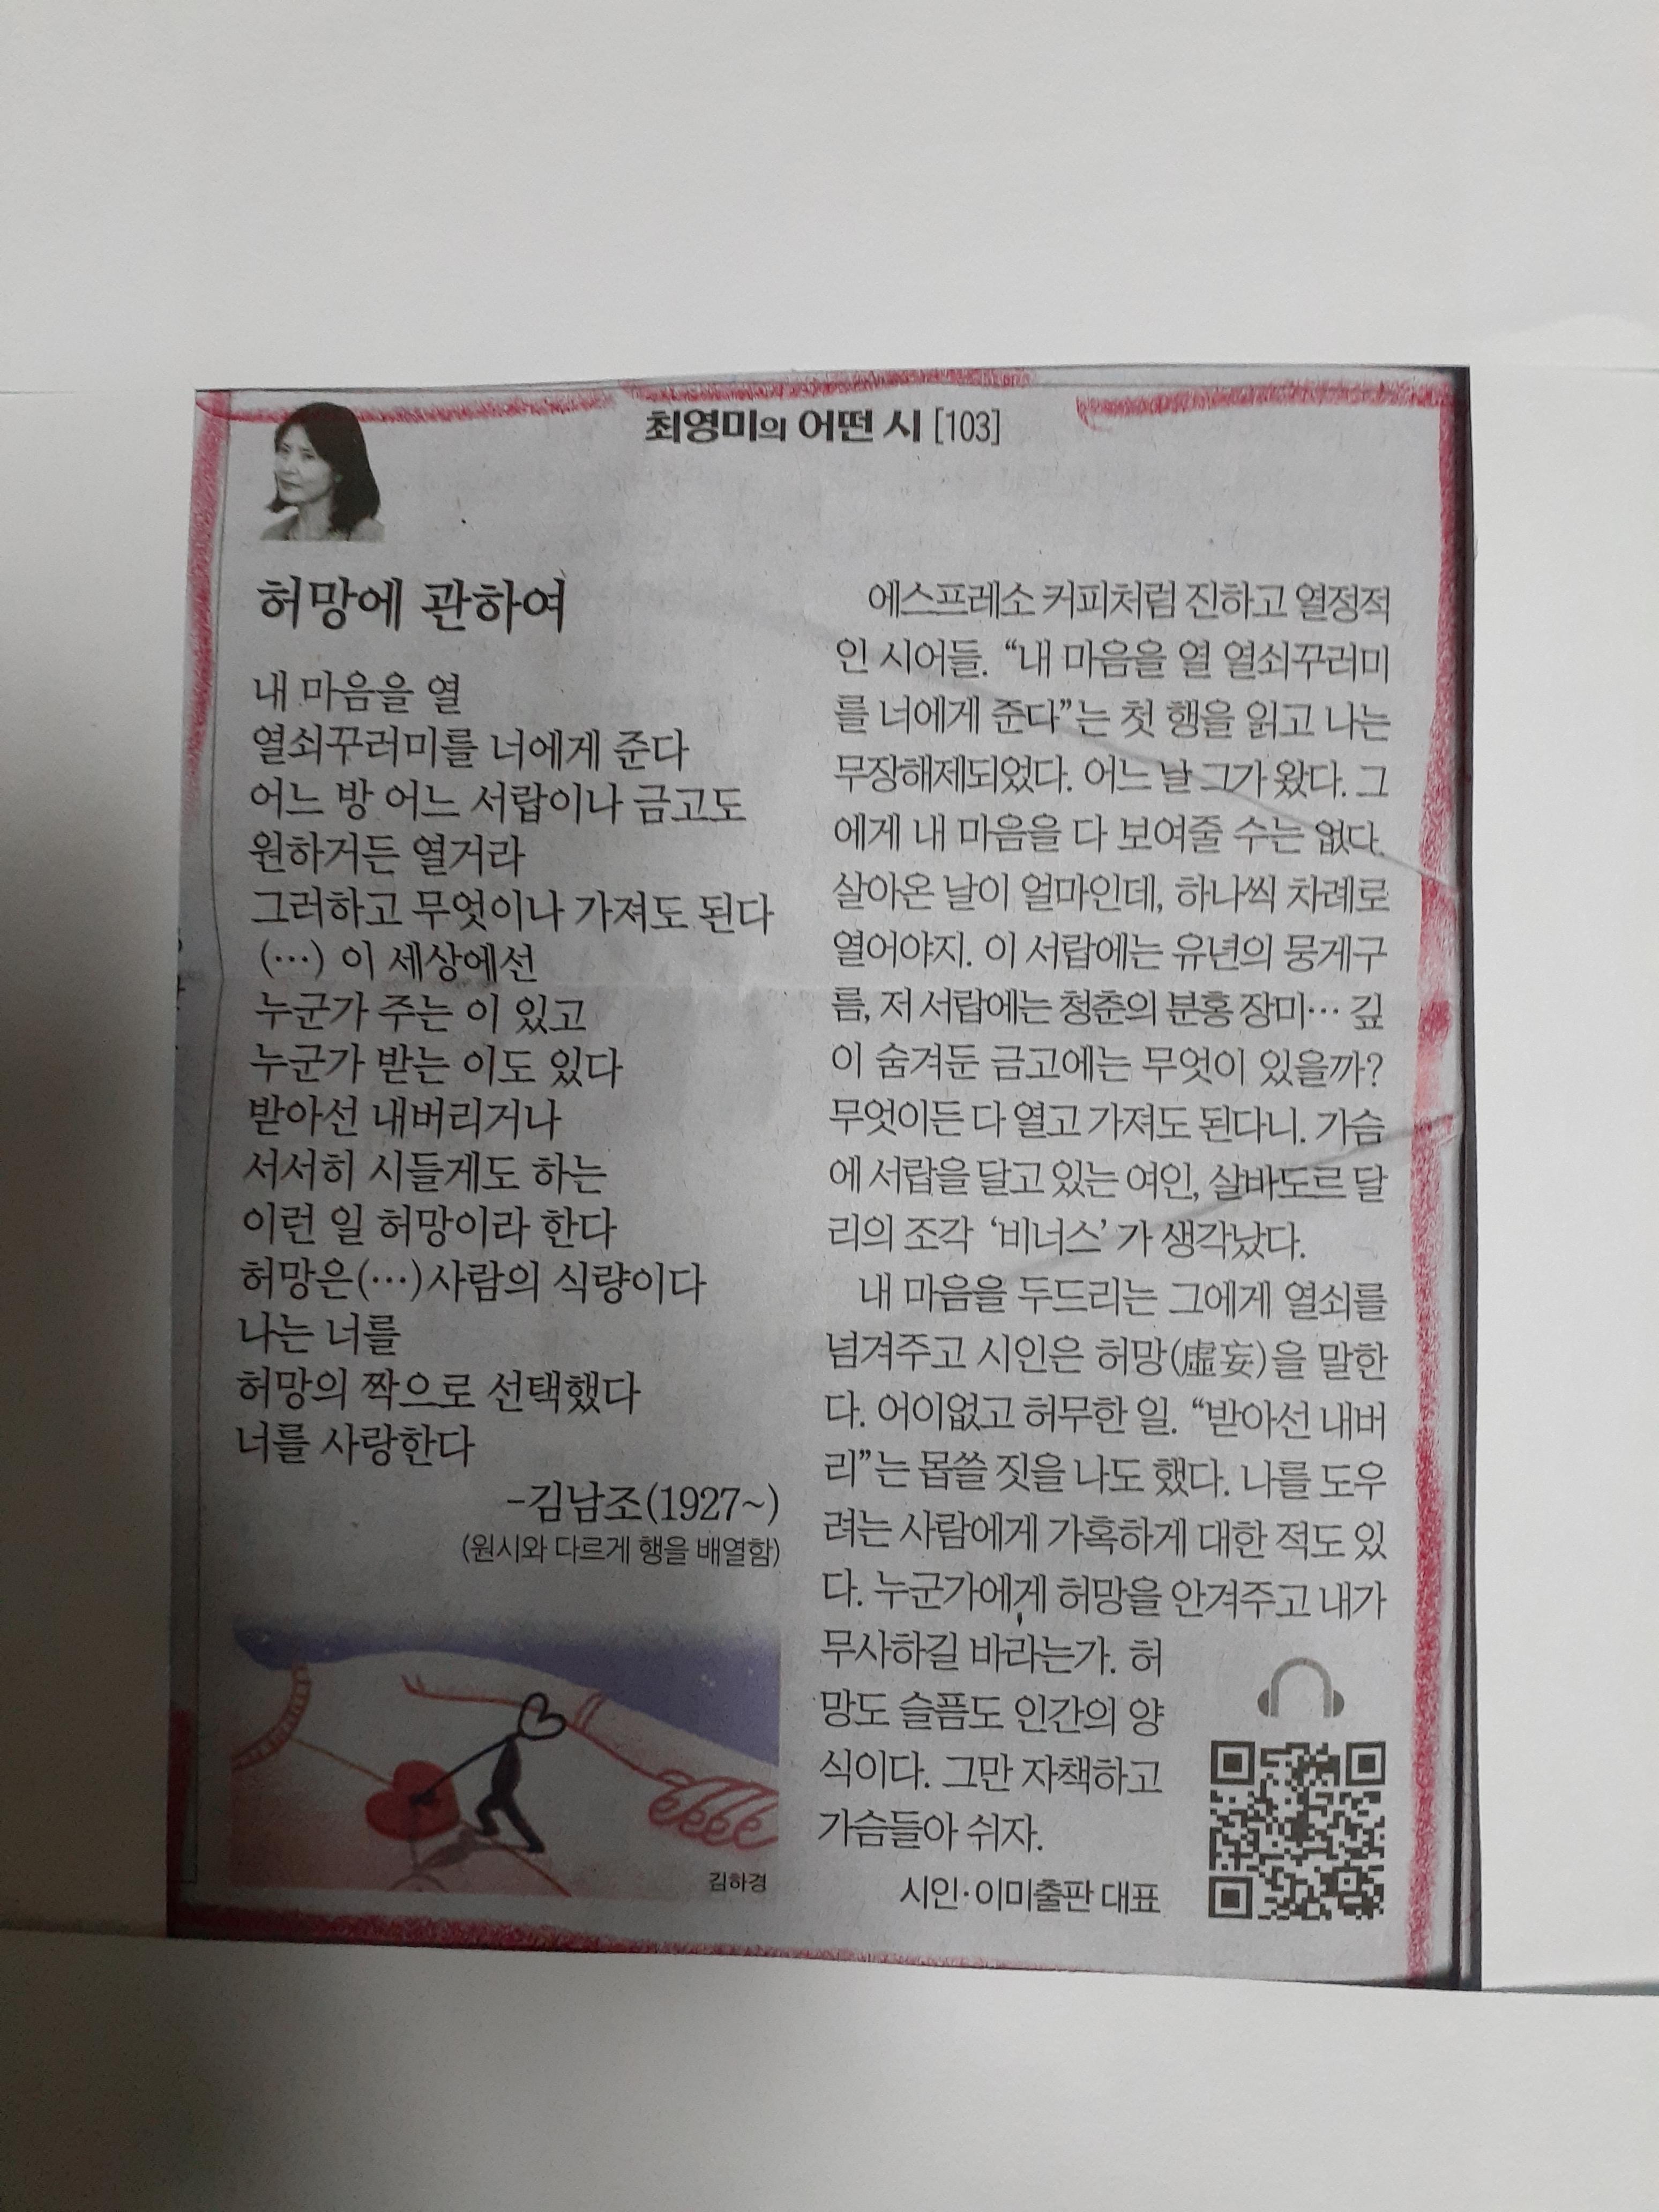 최영미의 어떤 시 [103]
허망에 관하여
내 마음을 열
열쇠꾸러미를 너에게 준다
어느 방 어느 서랍이나 금고도
원하거든 열거라
그러하고 무엇이나 가져도 된다
(···) 이 세상에선
누군가 주는 이 있고
누군가 받는 이도 있다
받아선 내버리거나
서서히 시들게도 하는
이런 일 허망이라 한다
허망은(···)사람의 식량이다
나는 너를
허망의 짝으로 선택했다
너를 사랑한다
-김남조(1927~)
(원시와 다르게 행을 배열함)
김하경
에스프레소 커피처럼 진하고 열정적
인 시어들. “내 마음을 열 열쇠꾸러미
를 너에게 준다”는 첫 행을 읽고 나는
무장해제되었다. 어느 날 그가 왔다. 그
에게 내 마음을 다 보여줄 수는 없다.
살아온 날이 얼마인데, 하나씩 차례로
열어야지. 이 서랍에는 유년의 뭉게구
름, 저 서랍에는 청춘의 분홍 장미··· 깊
이 숨겨둔 금고에는 무엇이 있을까?
무엇이든 다 열고 가져도 된다니. 가슴
에 서랍을 달고 있는 여인, 살바도르 달
리의 조각 ‘비너스’가 생각났다.
내 마음을 두드리는 그에게 열쇠를
넘겨주고 시인은 허망(虛妄)을 말한
다. 어이없고 허무한 일. “받아선 내버
리”는 몹쓸 짓을 나도 했다. 나를 도우
려는 사람에게 가혹하게 대한 적도 있
다. 누군가에게 허망을 안겨주고 내가
무사하길 바라는가. 허
망도 슬픔도 인간의 양
식이다. 그만 자책하고
가슴들아 쉬자.
시인·이미출판 대표